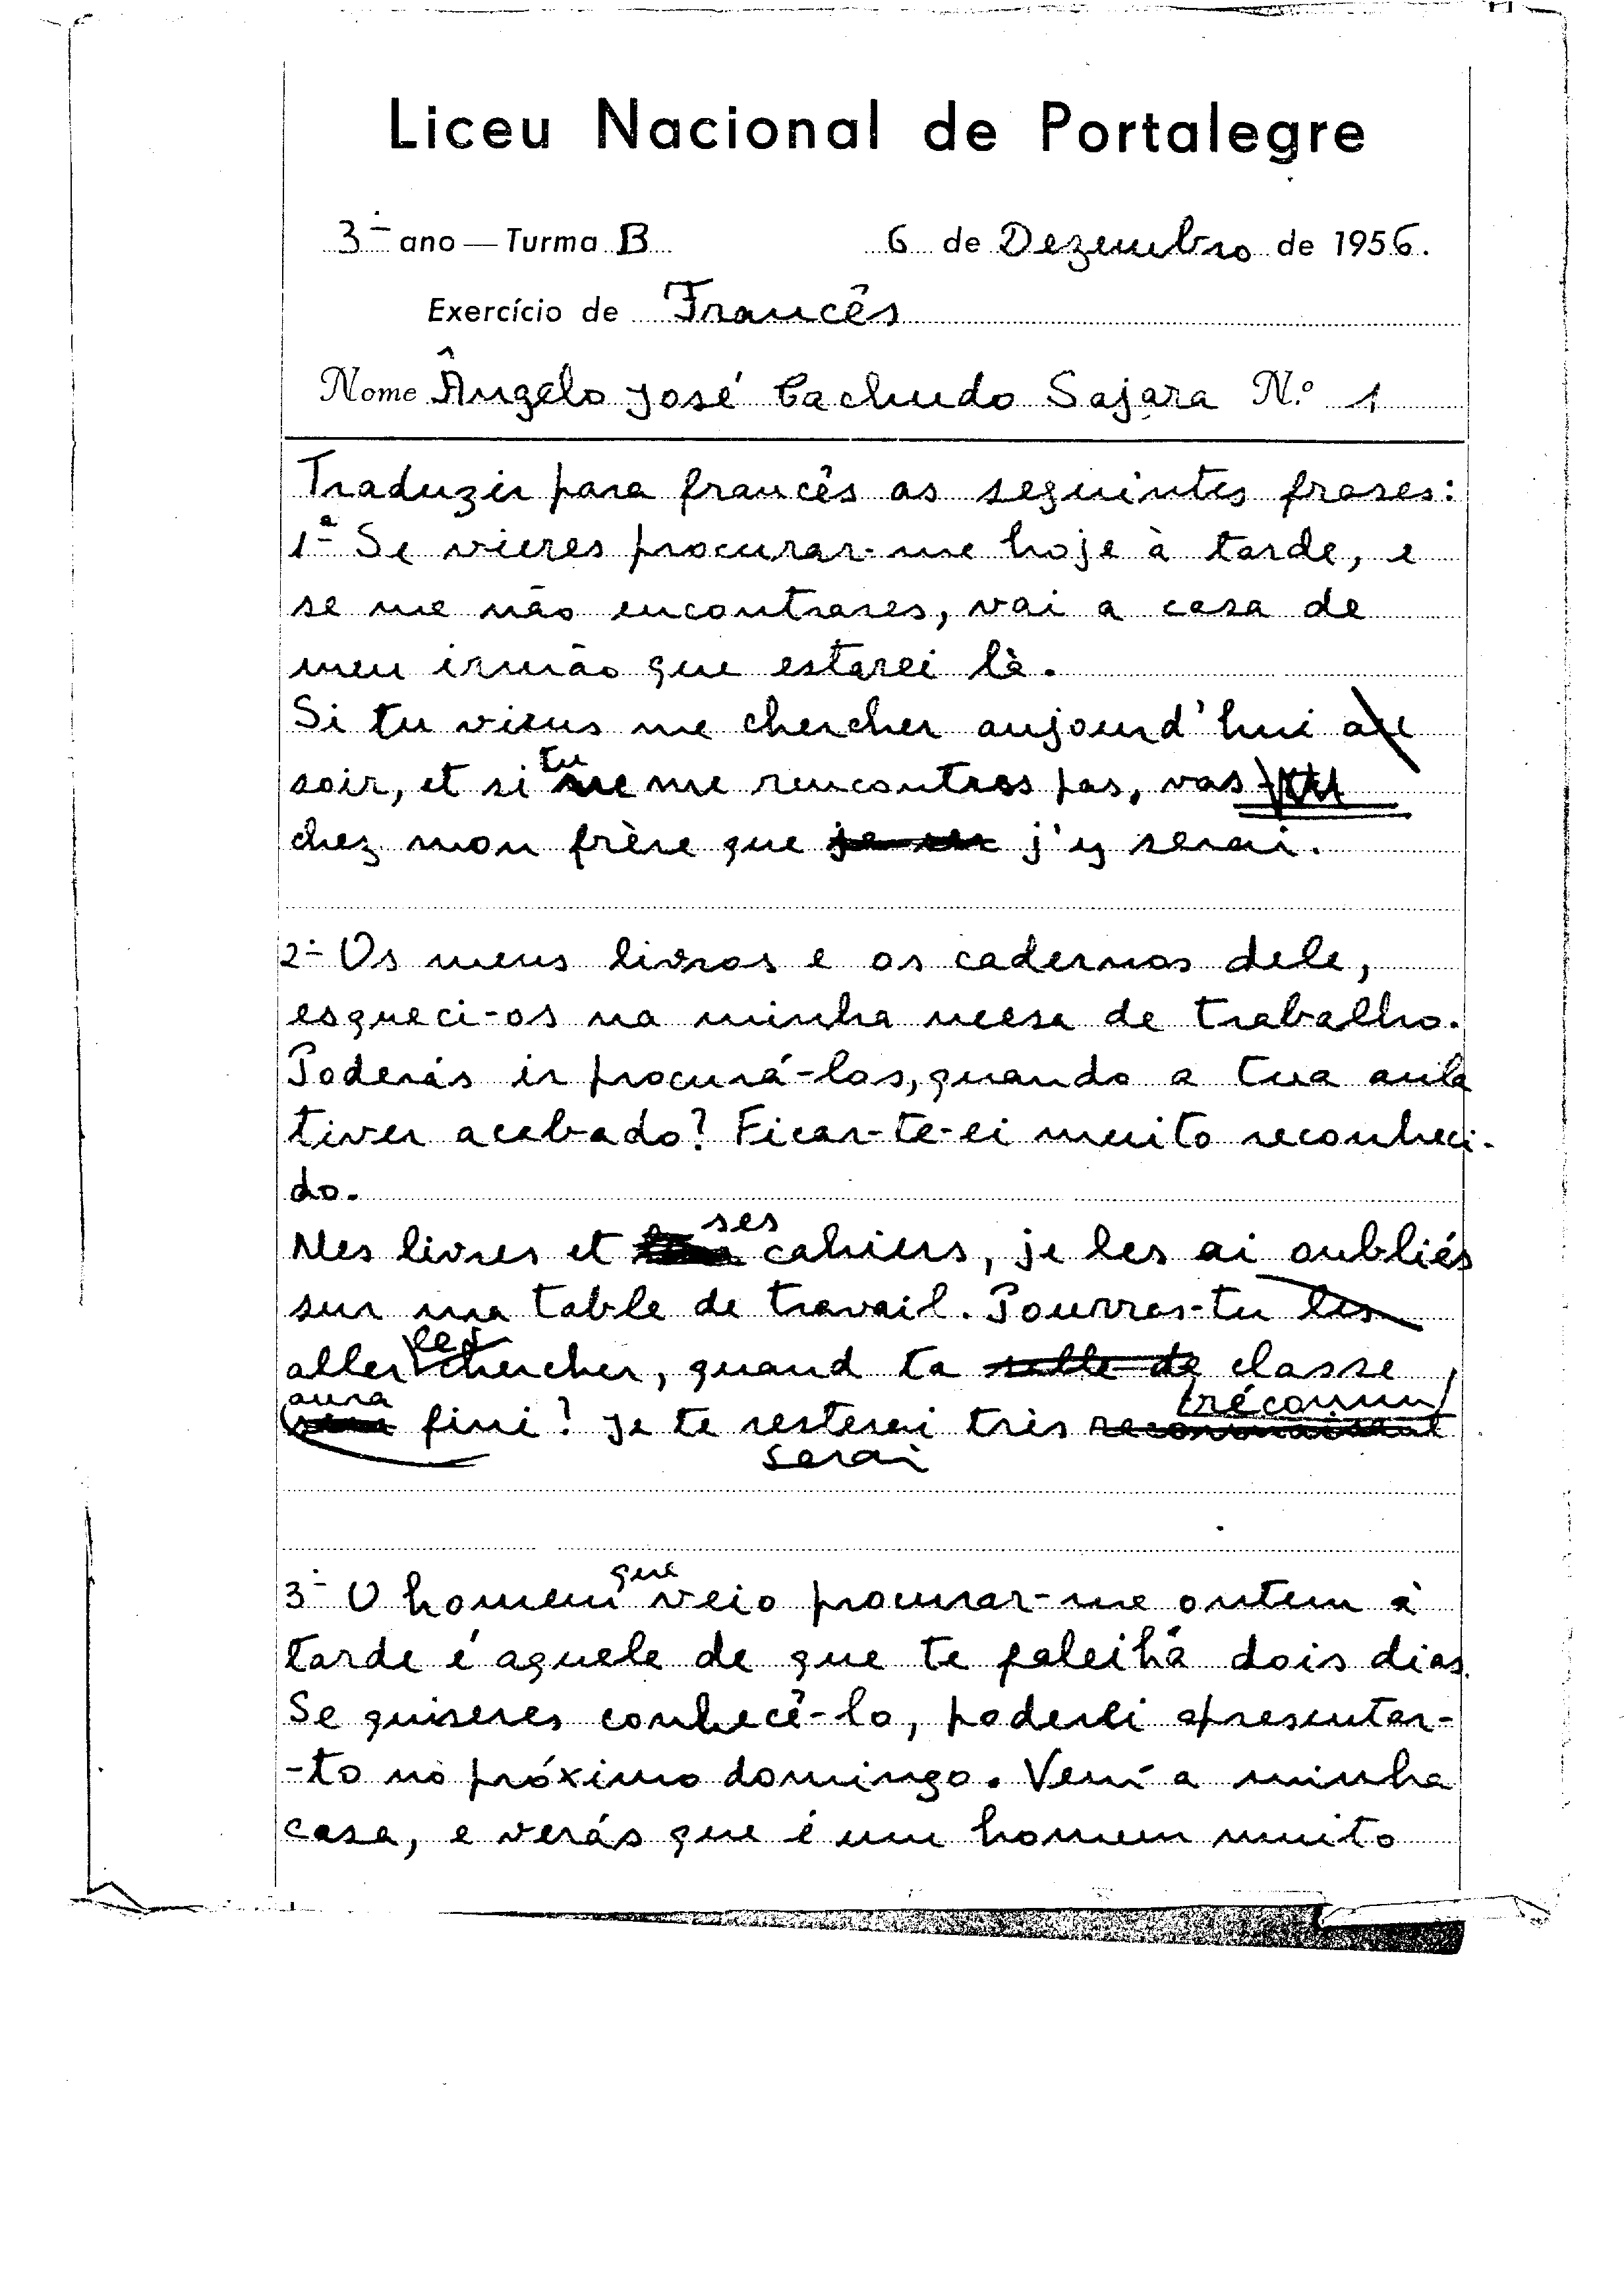 Liceu Nacional de Portalegre
3º ano — Turma B 6 de Dezembro de 1956.
Exercício de Francês
Nome Ângelo José Cachudo Sajara N.º 1
Traduzir para francês as seguintes frases:
1ª Se vieres procurar-me hoje à tarde, e
se me não encontrares, vai a casa de
meu irmão que estarei lá.
Si tu viens me chercher aujourd'hui au
tu
soir, et si ne me rencontres pas, vas
chez mon frère que je ser j'y serai.
2ª Os meus livros e os cadernos dele,
esqueci-os na minha mesa de trabalho.
Poderás ir procurá-los, quando a tua aula
tiver acabado? Ficar-te-ei muito reconheci-
do.
ses
Mes livres et cahiers, je les ai oubliés
sur ma table de travail. Pourras-tu les
les
aller chercher, quand ta salle de classe
aura réconnu
sera fini? Je te resterai très reconnaissant
serai
que
3ª O homem veio procurar-me ontem à
tarde é aquele de que te falei há dois dias.
Se quiseres conhecê-lo, poderei apresentar-
-to no próximo domingo. Vem a minha
casa, e verás que é um homem muito